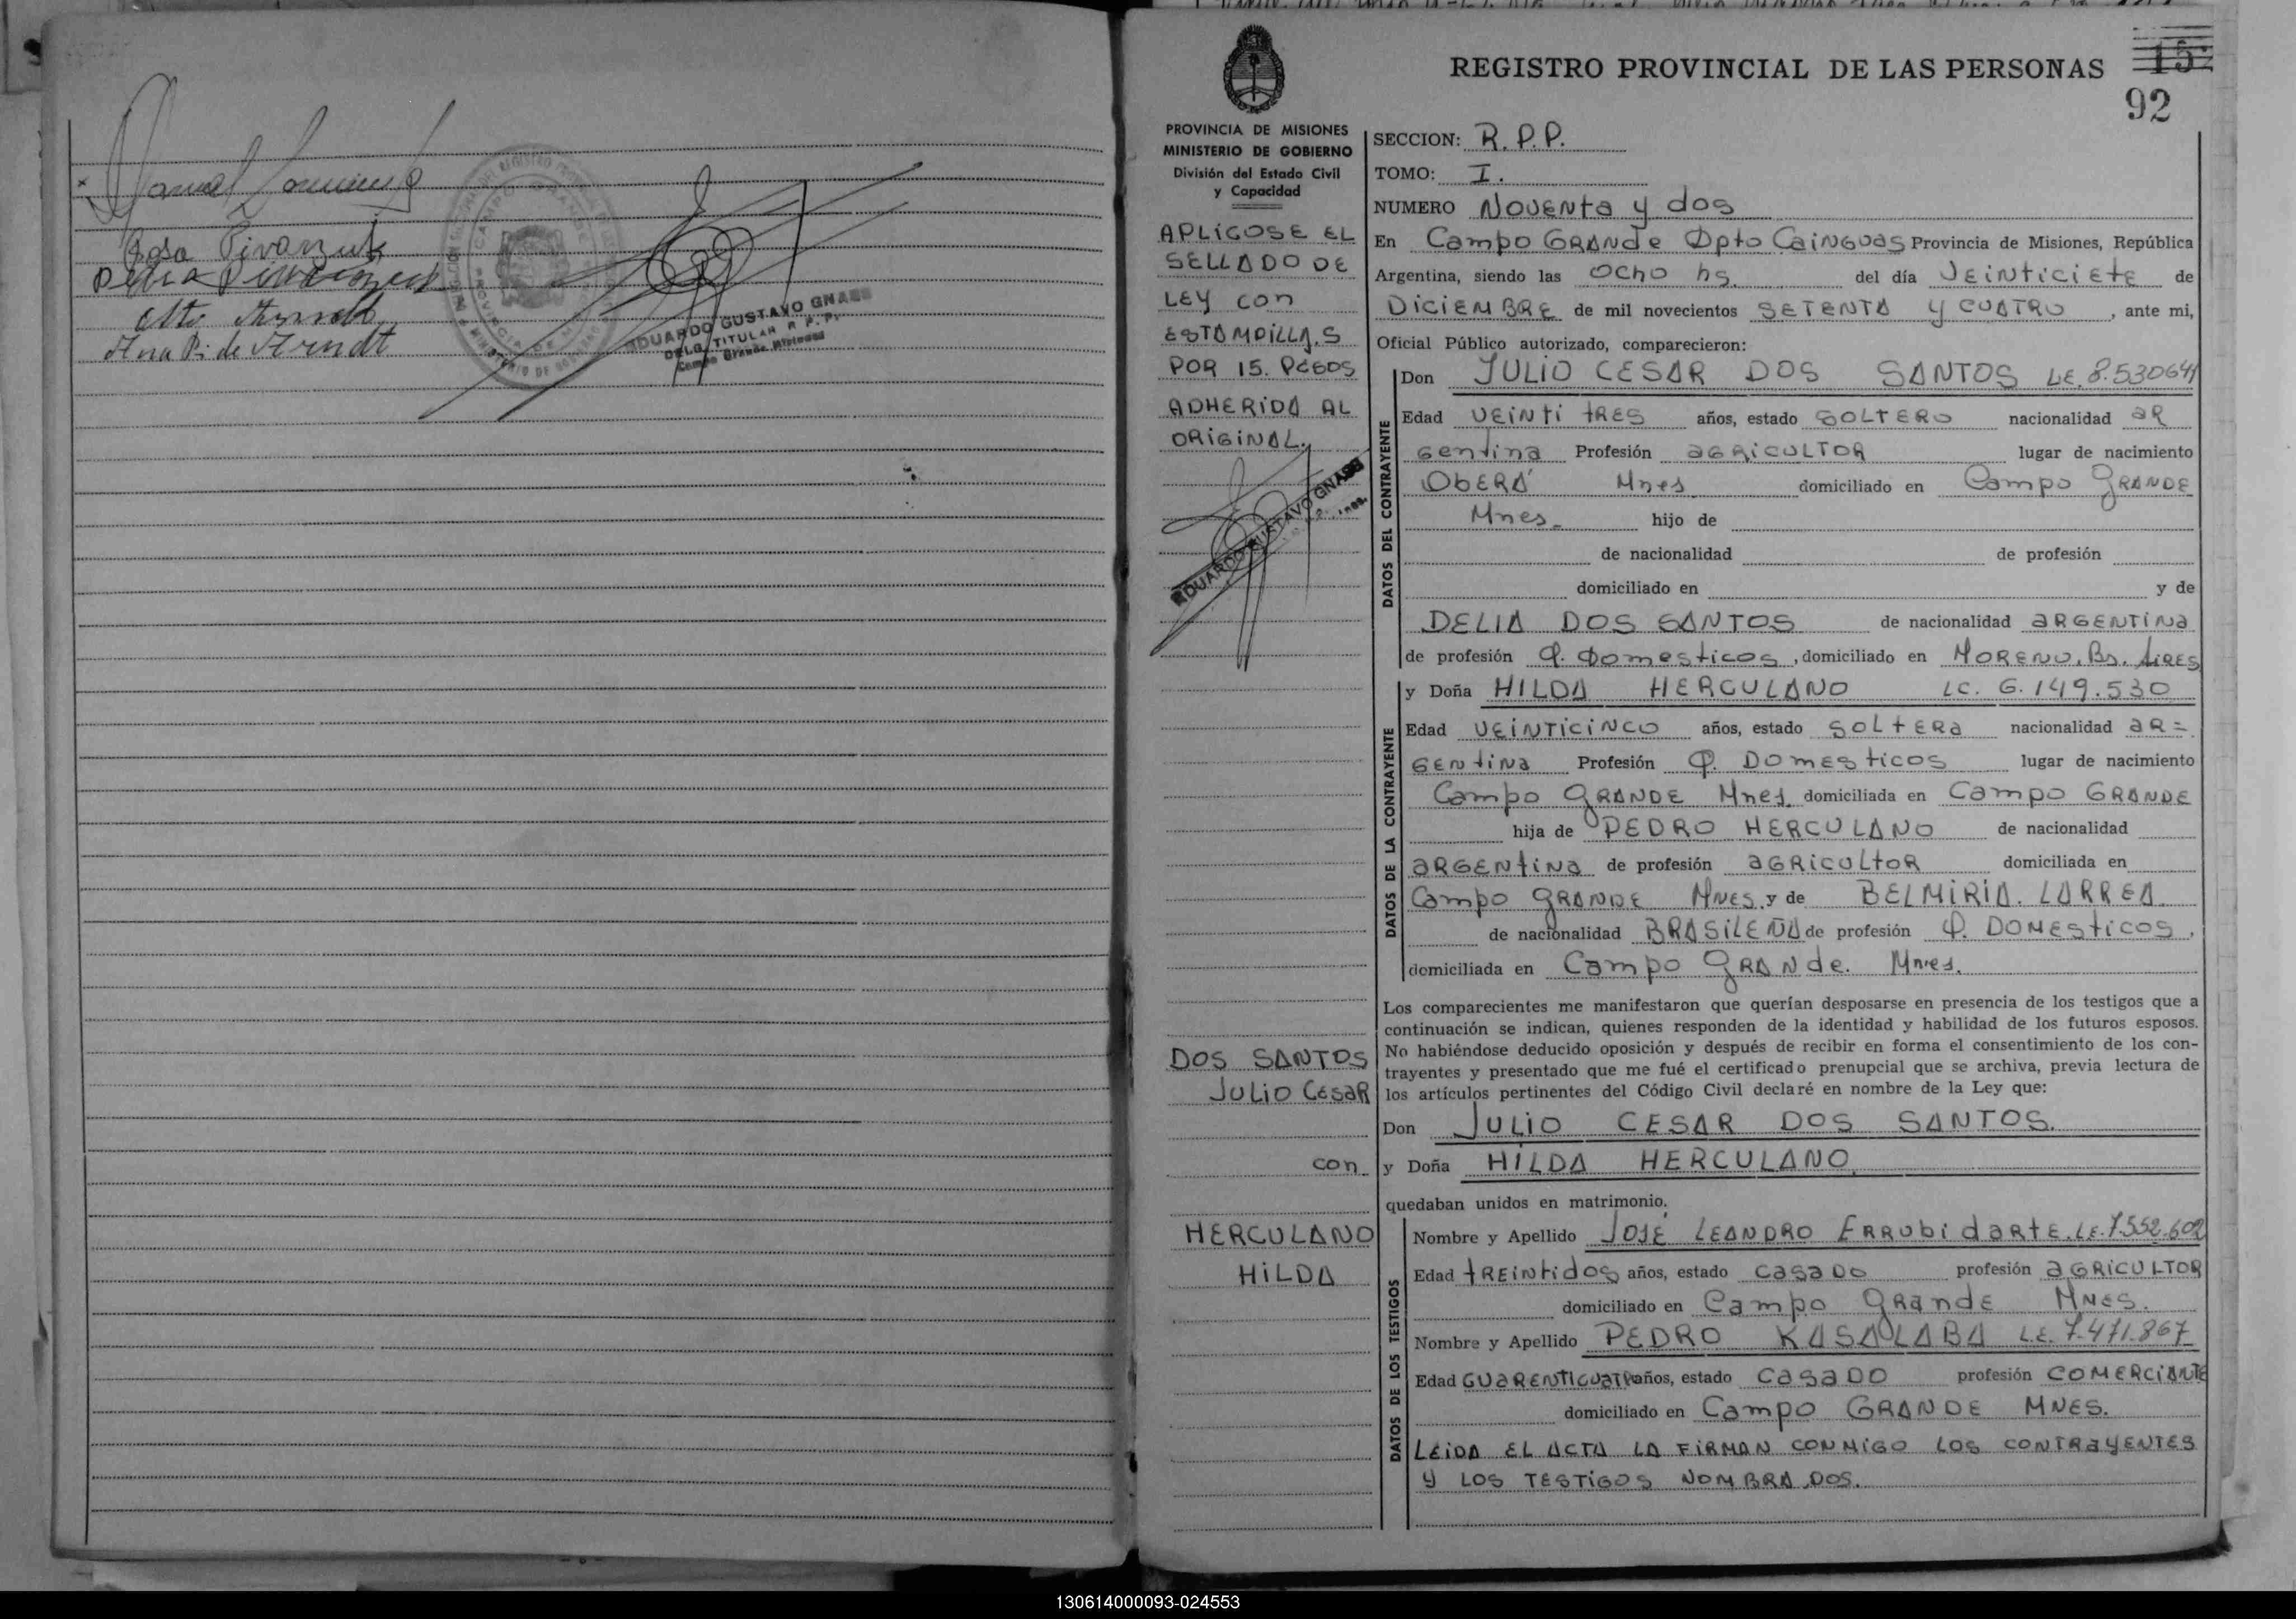 Rosa Pivarzuk
Otto Arndt
Ana P. de Arndt
EDUARDO GUSTAVO GNASS
DELG. TITULAR R.P.P.
Campo Grande Misiones
REGISTRO PROVINCIAL DE LAS PERSONAS
92
PROVINCIA DE MISIONES
MINISTERIO DE GOBIERNO
División del Estado Civil
y Capacidad
APLICOSE EL
SELLADO DE
LEY con
ESTAMPILLA.S
POR 15. PESOS
ADHERIDA AL
ORIGINAL.
EDUARDO GUSTAVO GNASS
DOS SANTOS
JULIO CESAR
con
HERCULANO
HILDA
SECCION: R.P.P.
TOMO: I.
NUMERO NOVENTA y dos
En Campo GRANDE Dpto CAINGUAS Provincia de Misiones, República
Argentina, siendo las OCHO hs. del día VEINTICIETE de
DICIEMBRE de mil novecientos SETENTA Y CUATRO, ante mi,
Oficial Público autorizado, comparecieron:
DATOS DEL CONTRAYENTE
Don JULIO CESAR DOS SANTOS LE. 8.530641
Edad VEINTI TRES años, estado SOLTERO nacionalidad AR
GENTINA Profesión AGRICULTOR lugar de nacimiento
OBERÁ Mnes domiciliado en Campo GRANDE
Mnes. hijo de
de nacionalidad de profesión
domiciliado en y de
DELIA DOS SANTOS de nacionalidad ARGENTINA
de profesión Q. Domesticos, domiciliado en MORENO. Bs. AIRES
DATOS DE LA CONTRAYENTE
y Doña HILDA HERCULANO LC. 6.149.530
Edad VEINTICINCO años, estado SOLTERA nacionalidad AR=
GENTINA Profesión Q. DOMESTICOS lugar de nacimiento
Campo GRANDE Mnes. domiciliada en Campo GRANDE
hija de PEDRO HERCULANO de nacionalidad
ARGENTINA de profesión AGRICULTOR domiciliada en
Campo GRANDE MNES. y de BELMIRIA. LARREA.
de nacionalidad BRASILEÑA de profesión Q. DOMESTICOS,
domiciliada en Campo GRANDE. Mnes.
Los comparecientes me manifestaron que querían desposarse en presencia de los testigos que a
continuación se indican, quienes responden de la identidad y habilidad de los futuros esposos.
No habiéndose deducido oposición y después de recibir en forma el consentimiento de los con-
trayentes y presentado que me fué el certificado prenupcial que se archiva, previa lectura de
los artículos pertinentes del Código Civil declaré en nombre de la Ley que:
Don JULIO CESAR DOS SANTOS.
y Doña HILDA HERCULANO.
quedaban unidos en matrimonio.
DATOS DE LOS TESTIGOS
Nombre y Apellido JOSÉ LEANDRO ERRUBIDARTE. LE. 7.552.602
Edad TREINTIDOS años, estado CASADO profesión AGRICULTOR
domiciliado en Campo Grande MNES.
Nombre y Apellido PEDRO KASALABA L.E. 7.471.867
Edad CUARENTICUATRO años, estado CASADO profesión COMERCIANTE
domiciliado en Campo GRANDE MNES.
LEIDA EL ACTA LA FIRMAN CONMIGO LOS CONTRAYENTES
Y LOS TESTIGOS NOMBRADOS.
130614000093-024553